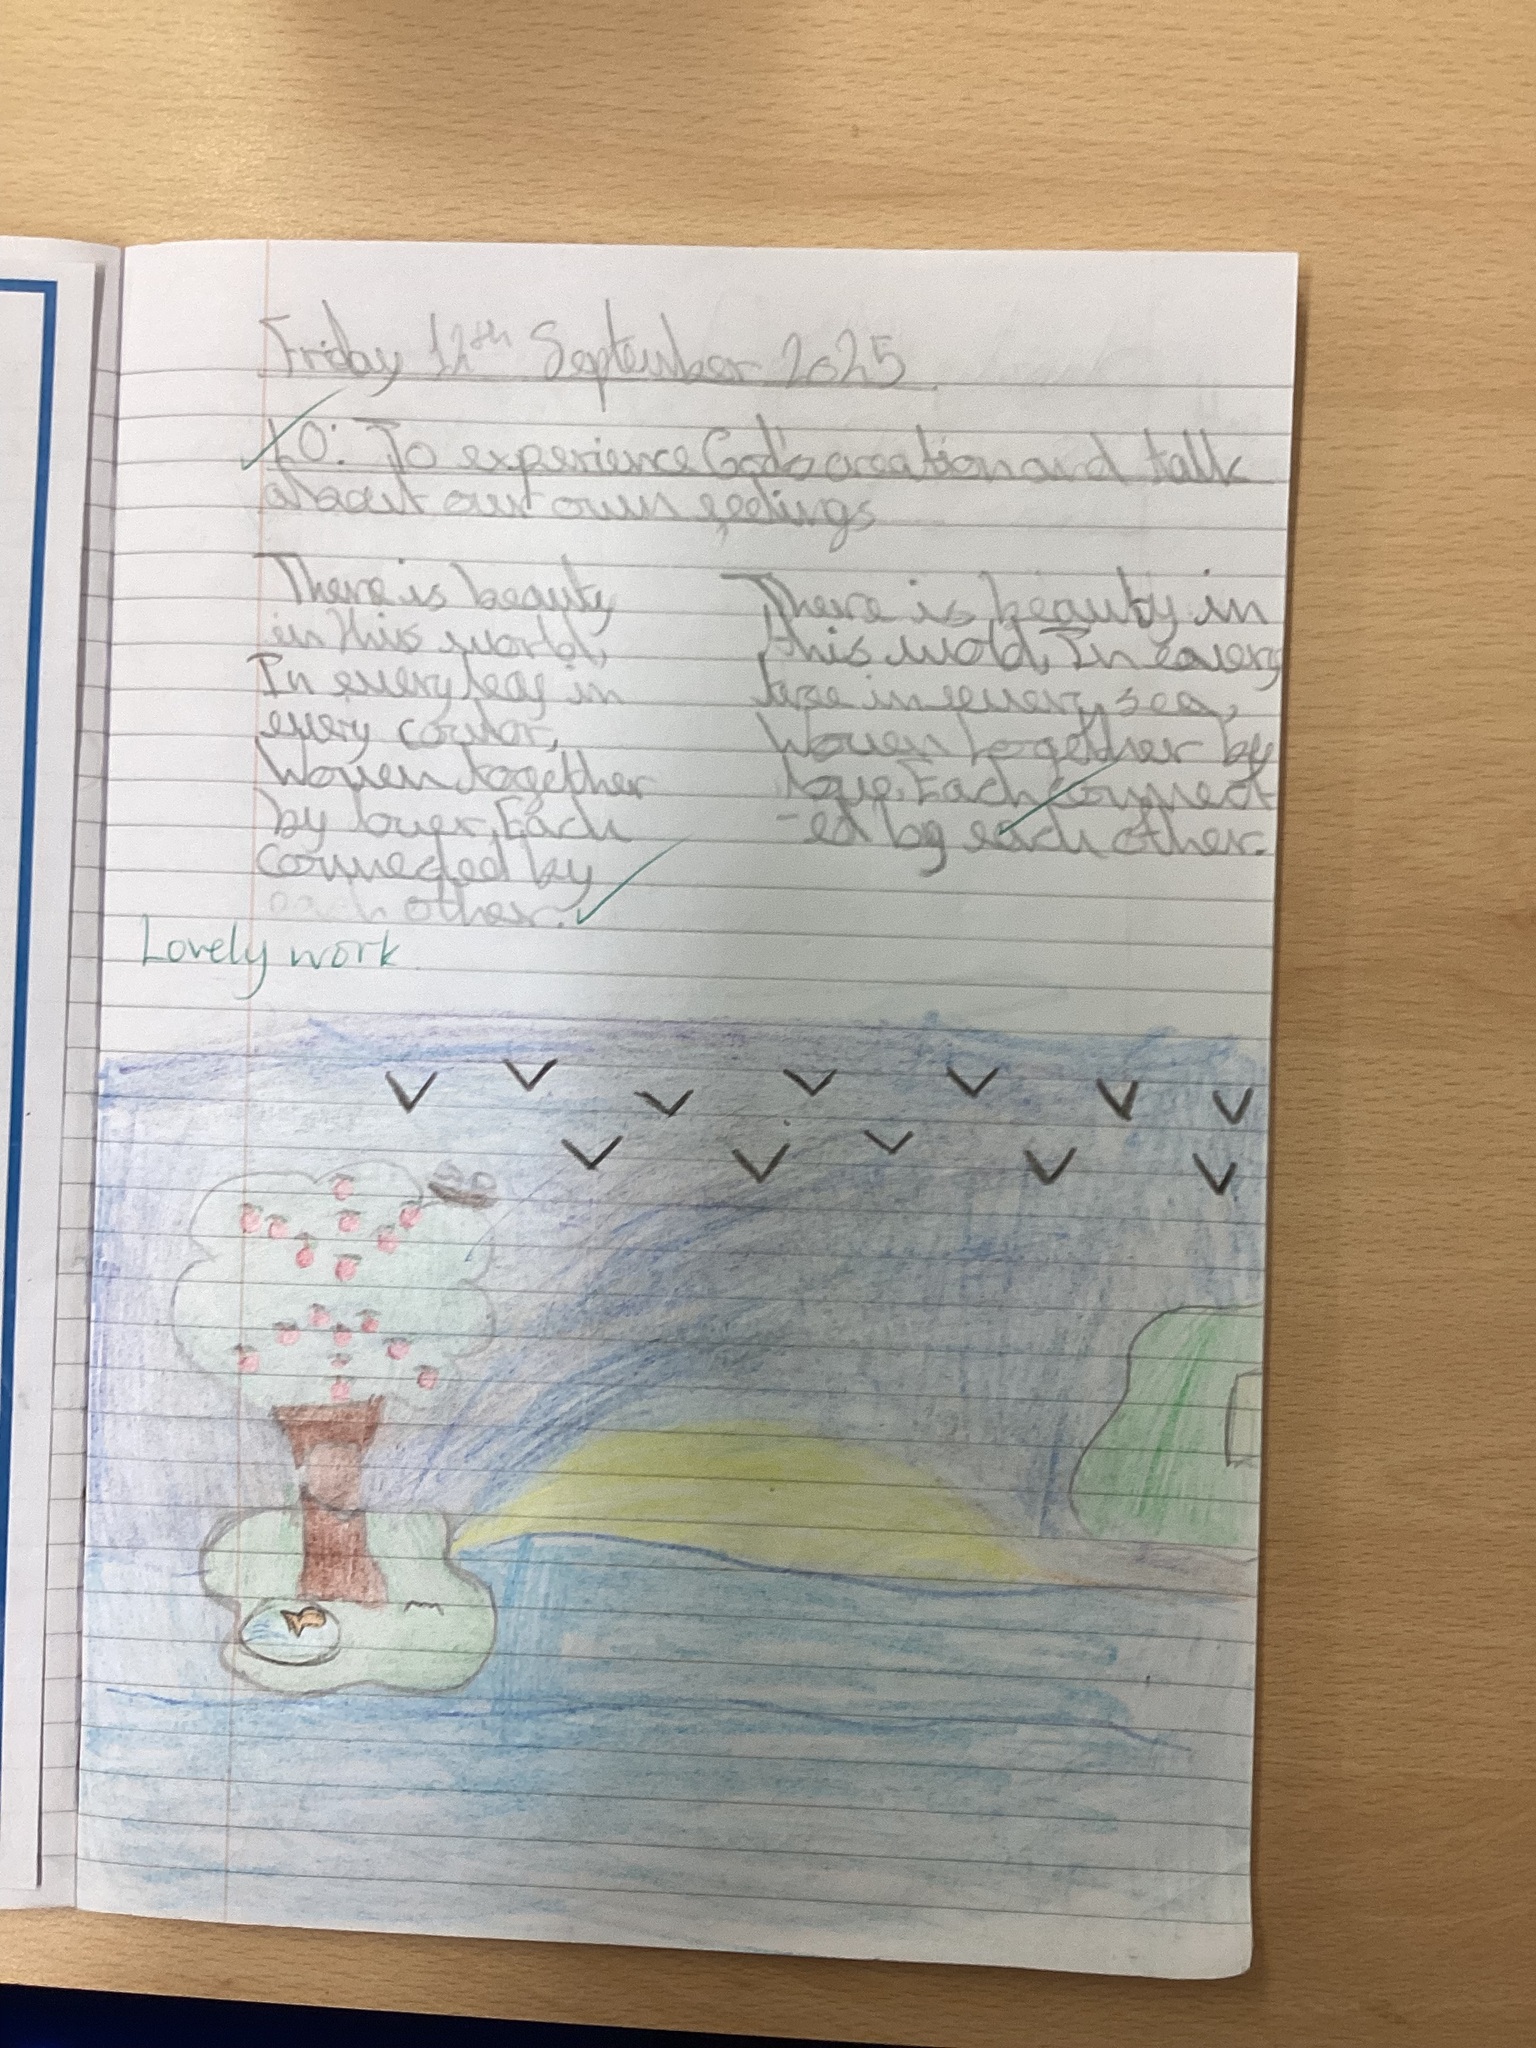 Friday 12th September 2025
LO: To experience God's creation and talk
about our own feelings
There is beauty
in this world,
In every leaf in
every
Woven together
by Each
connected by
each other.
There is beauty in
this wold, In every
in every sea,
Woven together by
love, Each connect
-ed by each other.
Lovely work